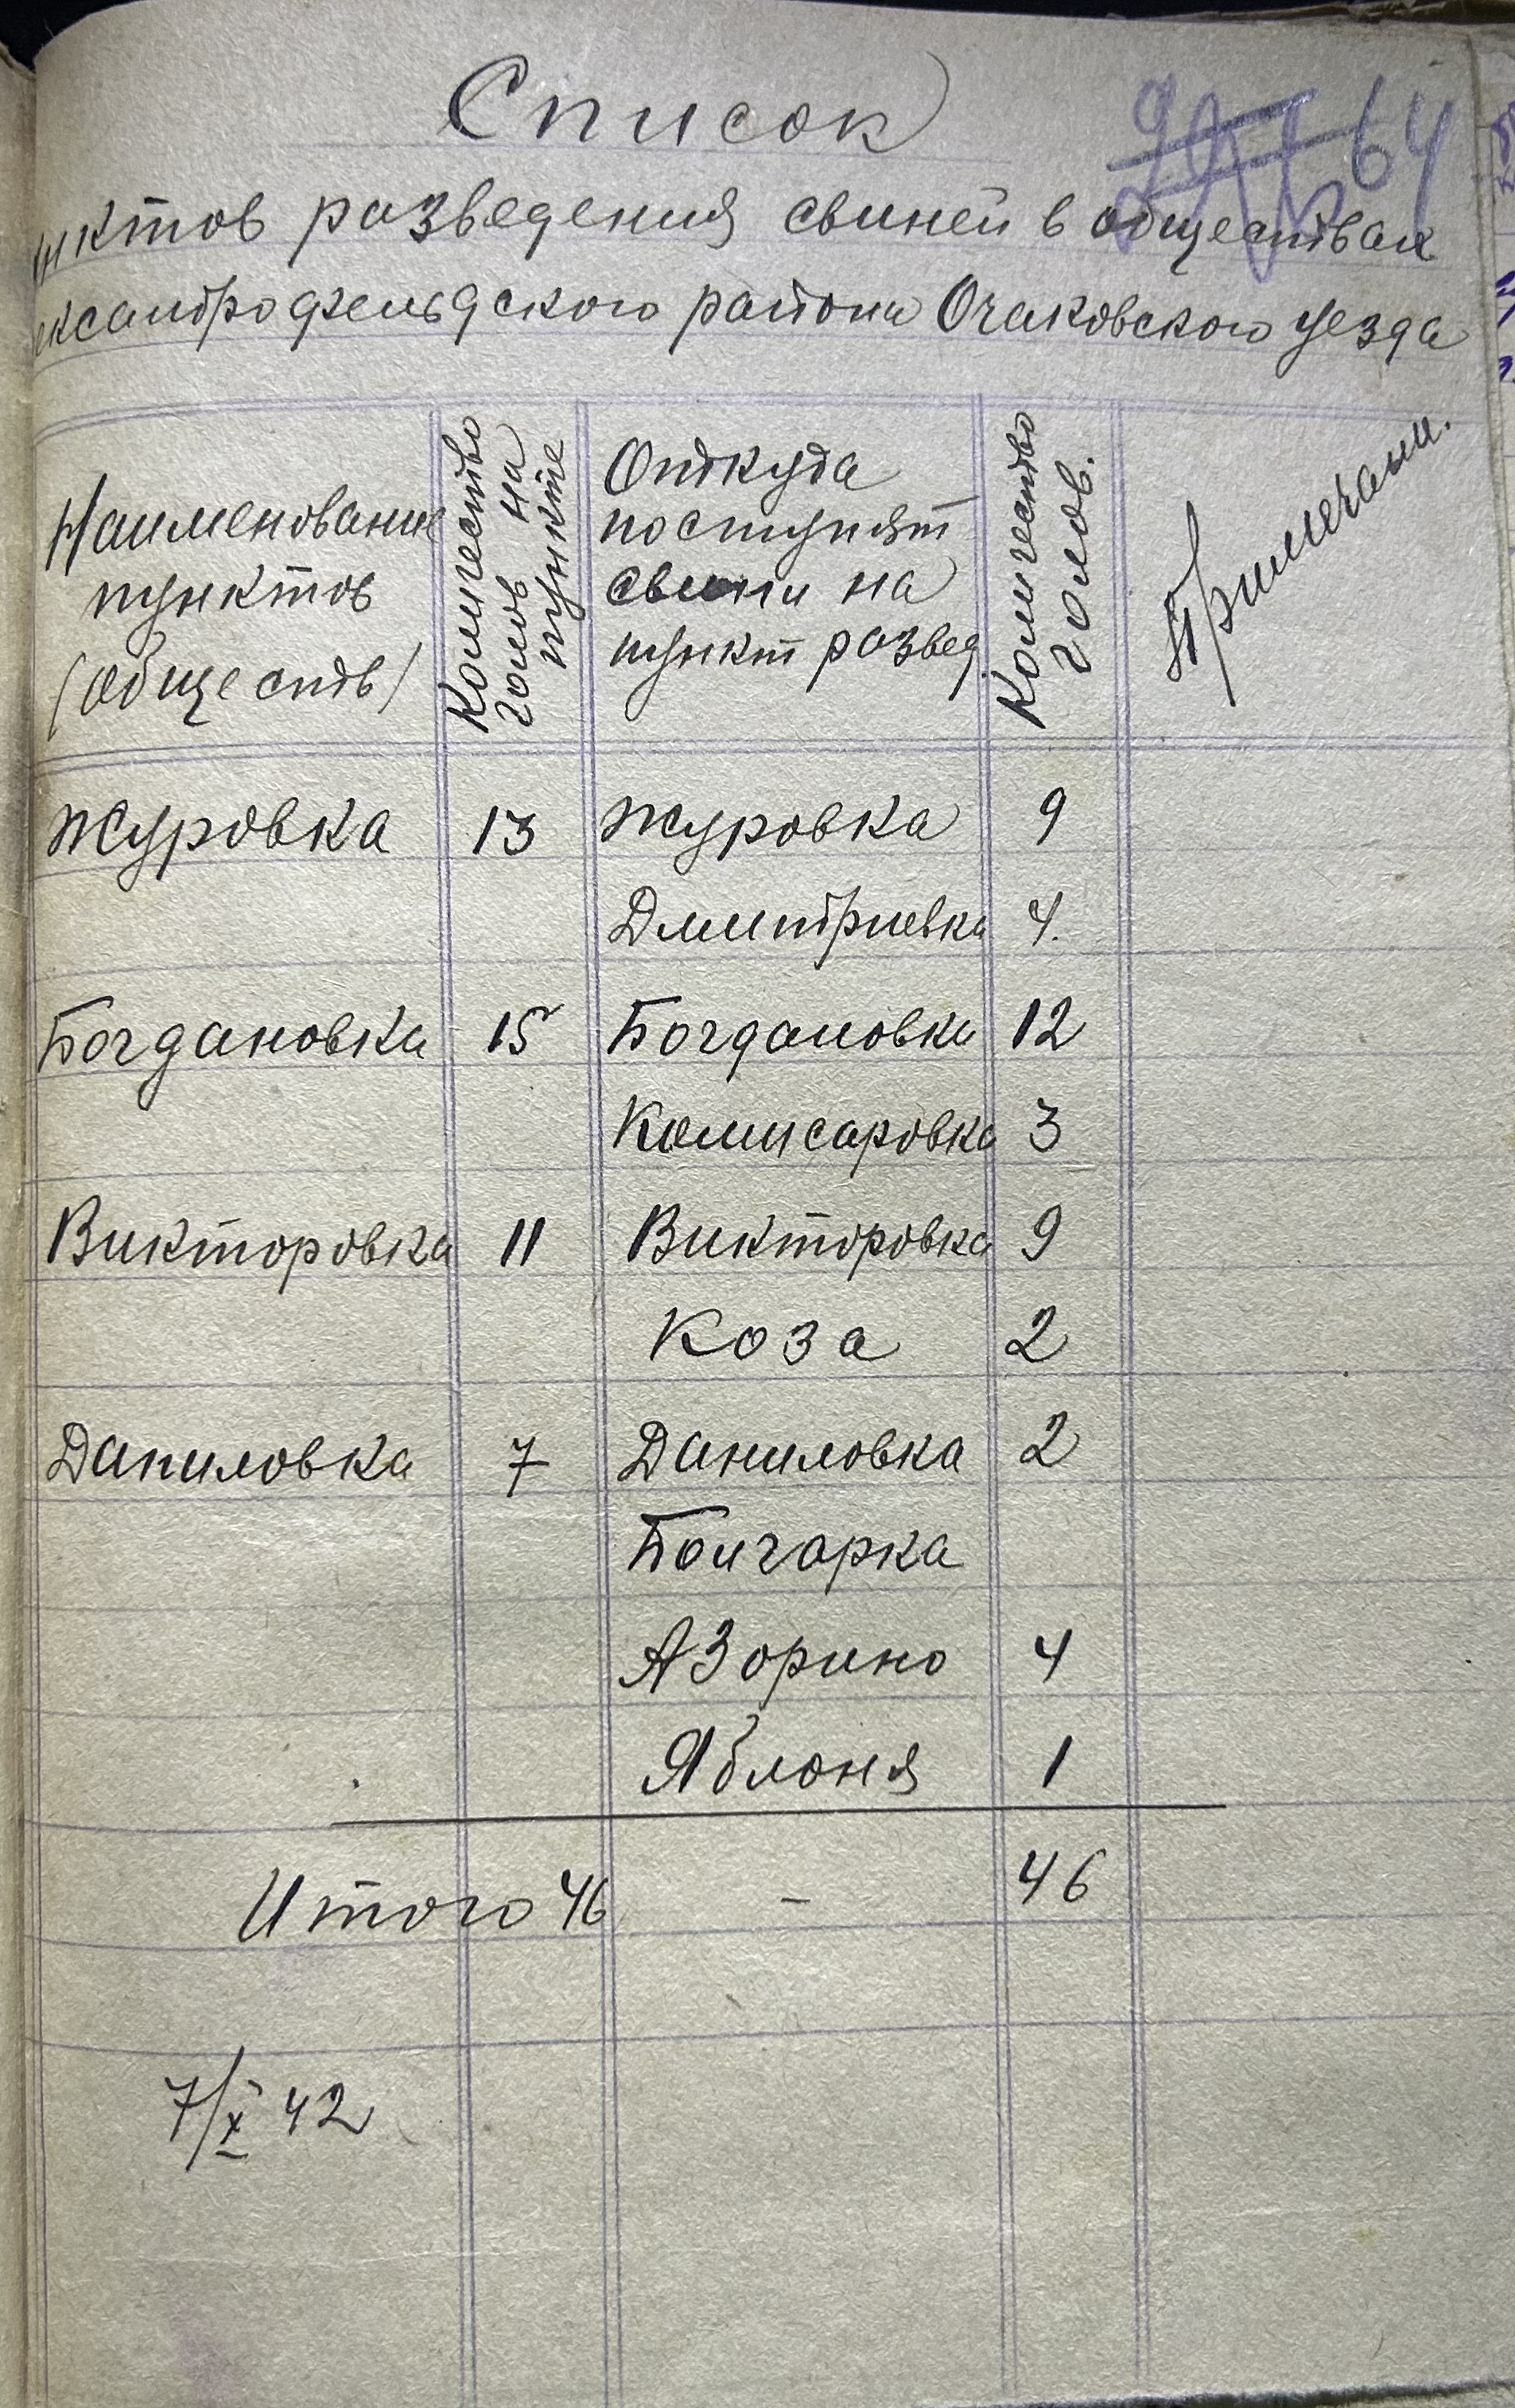 Список
64
нктов розведения свиней в обществах
ександродфельдского района Очаковского уезда
Наименование пунктов (обществ)
Количество голов на пункте
Откуда поступят свини на пункт развед.
Количество голов.
Примечани.
Журовка 13 Журовка 9
Дмитриевка 4.
Богдановка 15 Богдановка 12
Комисаровка 3
Викторовка 11 Викторовка 9
Коза 2
Даниловка 7 Даниловка 2
Болгарка
АЗорино 4
Яблоня 1
Итого 46 – 46
7/X 42